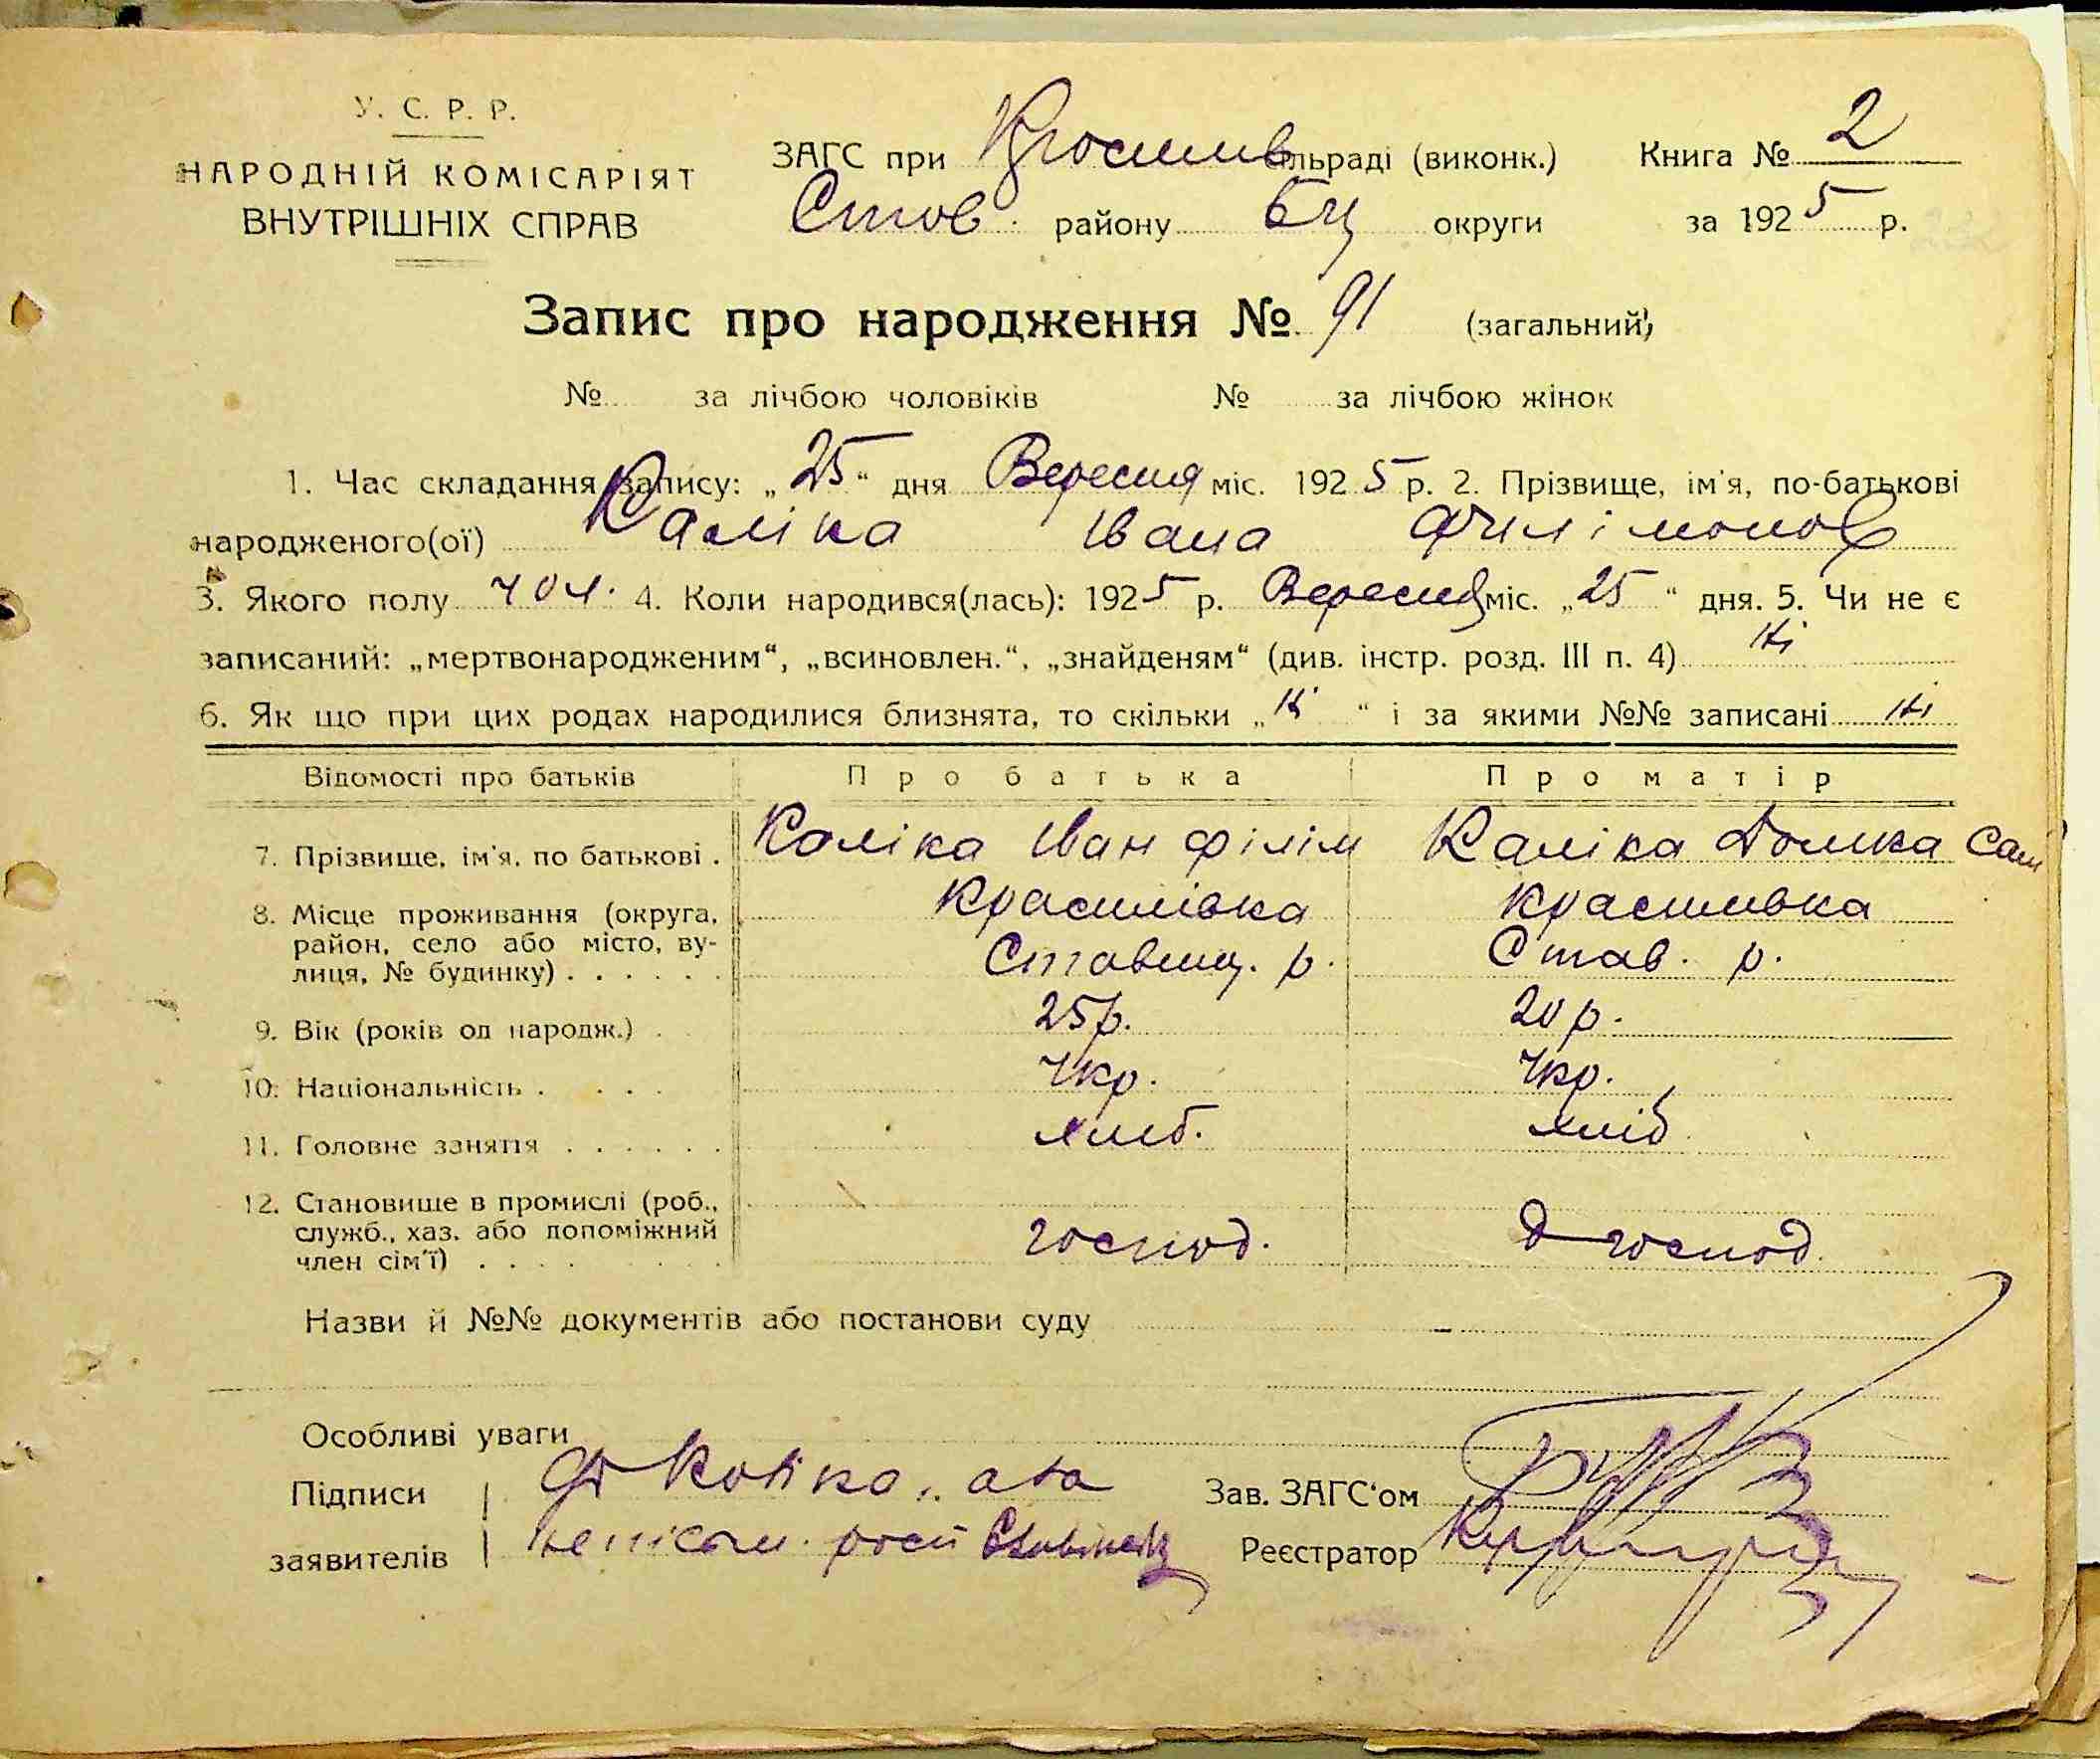 У. С. Р. Р.
НАРОДНІЙ КОМІСАРІЯТ
ВНУТРІШНІХ СПРАВ
ЗАГС при сільраді (виконк.) Книга № 2
Став. району БЦ округи за 1925 р.
Запис про народження № 91 (загальний)
№ за лічбою чоловіків № за лічбою жінок
1. Час складання запису: „25“ дня Вересня міс. 1925 р. 2. Прізвище, ім'я, по-батькові
народженого(ої) Каліка Івана Філімонов
3. Якого полу чол. 4. Коли народився(лась): 1925 р. Вересня міс. „25“ дня. 5. Чи не є
записаний: „мертвонародженим“, „всиновлен.“, „знайденям“ (див. інстр. розд. III п. 4) Ні
6. Як що при цих родах народилися близнята, то скільки „Н“ і за якими №№ записані Ні
Відомості про батьків Про батька Про матір
7. Прізвище, ім'я, по батькові . Каліка Іван Філім Каліка Домка Сам
8. Місце проживання (округа, район, село або місто, вулиця, № будинку) . . . . . . Красилівка Ставищ. р. Красилівка Став. р.
9. Вік (років од народж.) . 25 р. 20 р.
10. Національність . . . . Укр. Укр.
11. Головне заняття . . . . . . хліб. хліб
12. Становище в промислі (роб., служб., хаз. або допоміжний член сім'ї) . . . . господ. д господ.
Назви й №№ документів або постанови суду –
Особливі уваги
Підписи Зав. ЗАГС'ом
заявителів Реєстратор